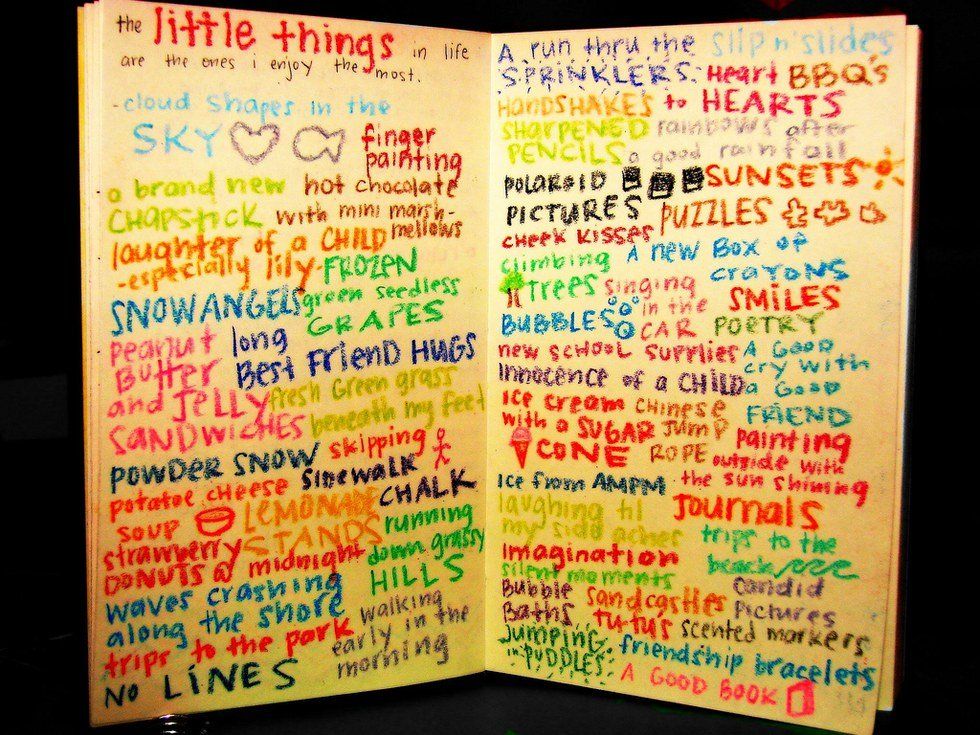 the little things in life
are the ones i enjoy the most.
-cloud shapes in the
SKY
finger
painting
a brand new
CHAPStick
hot chocolate
with mini marsh-
mellows
laughter of a CHILD
-especially lily-
FROZEN
green seedless
GRAPES
SNOW ANGELS
peanut
Butter
and JeLLY
SANDWICHES
long
Best FrienD HUGS
fresh Green grass
beneath my feet
POWDER SNOW
skipping
Sidewalk
CHALK
potatoe cheese
soup
LEMONADE
STANDS
running
down grassy
HILLS
strawberry
DONUTS @ midnight
waves crashing
along the shore
walking
early in the
morning
trips to the park
NO LiNES
A run thru the
SPRINKLERS.
slip n' slides
Heart BBQ's
HANDSHAKES to HEARTS
SHARPENED
PENCILS
rainbows after
a good rainfall
POLAROID
PICTURES
SUNSETS
PUZZLES
cheek kisses
climbing
trees
A new BOX OF
crayons
singing
in the
CAR
SMiLES
BUBBLES
POETRY
new school supplies
A GOOD
cry with
a GooD
FRIEND
innocence of a CHILD
ice cream
with a SUGAR
CONE
CHINESE
JUMP
ROPE
painting
outside with
the sun shining
ice from AMPM
Journals
laughing til
my side aches
trips to the
beach
imagination
silent moments
candid
pictures
Bubble
Baths
sandcastles
tutus
scented markers
Jumping
in PUDDLES
friendship bracelets
A GOOD BOOK